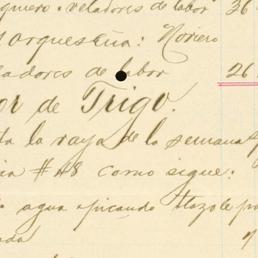 quero. Veladores de labor 36
Marquesina: Noriero
adores de labor 26
or de Trigo.
ta la raya de la semana
ia #48 como sigue:
agua picando tlazole pa
ada